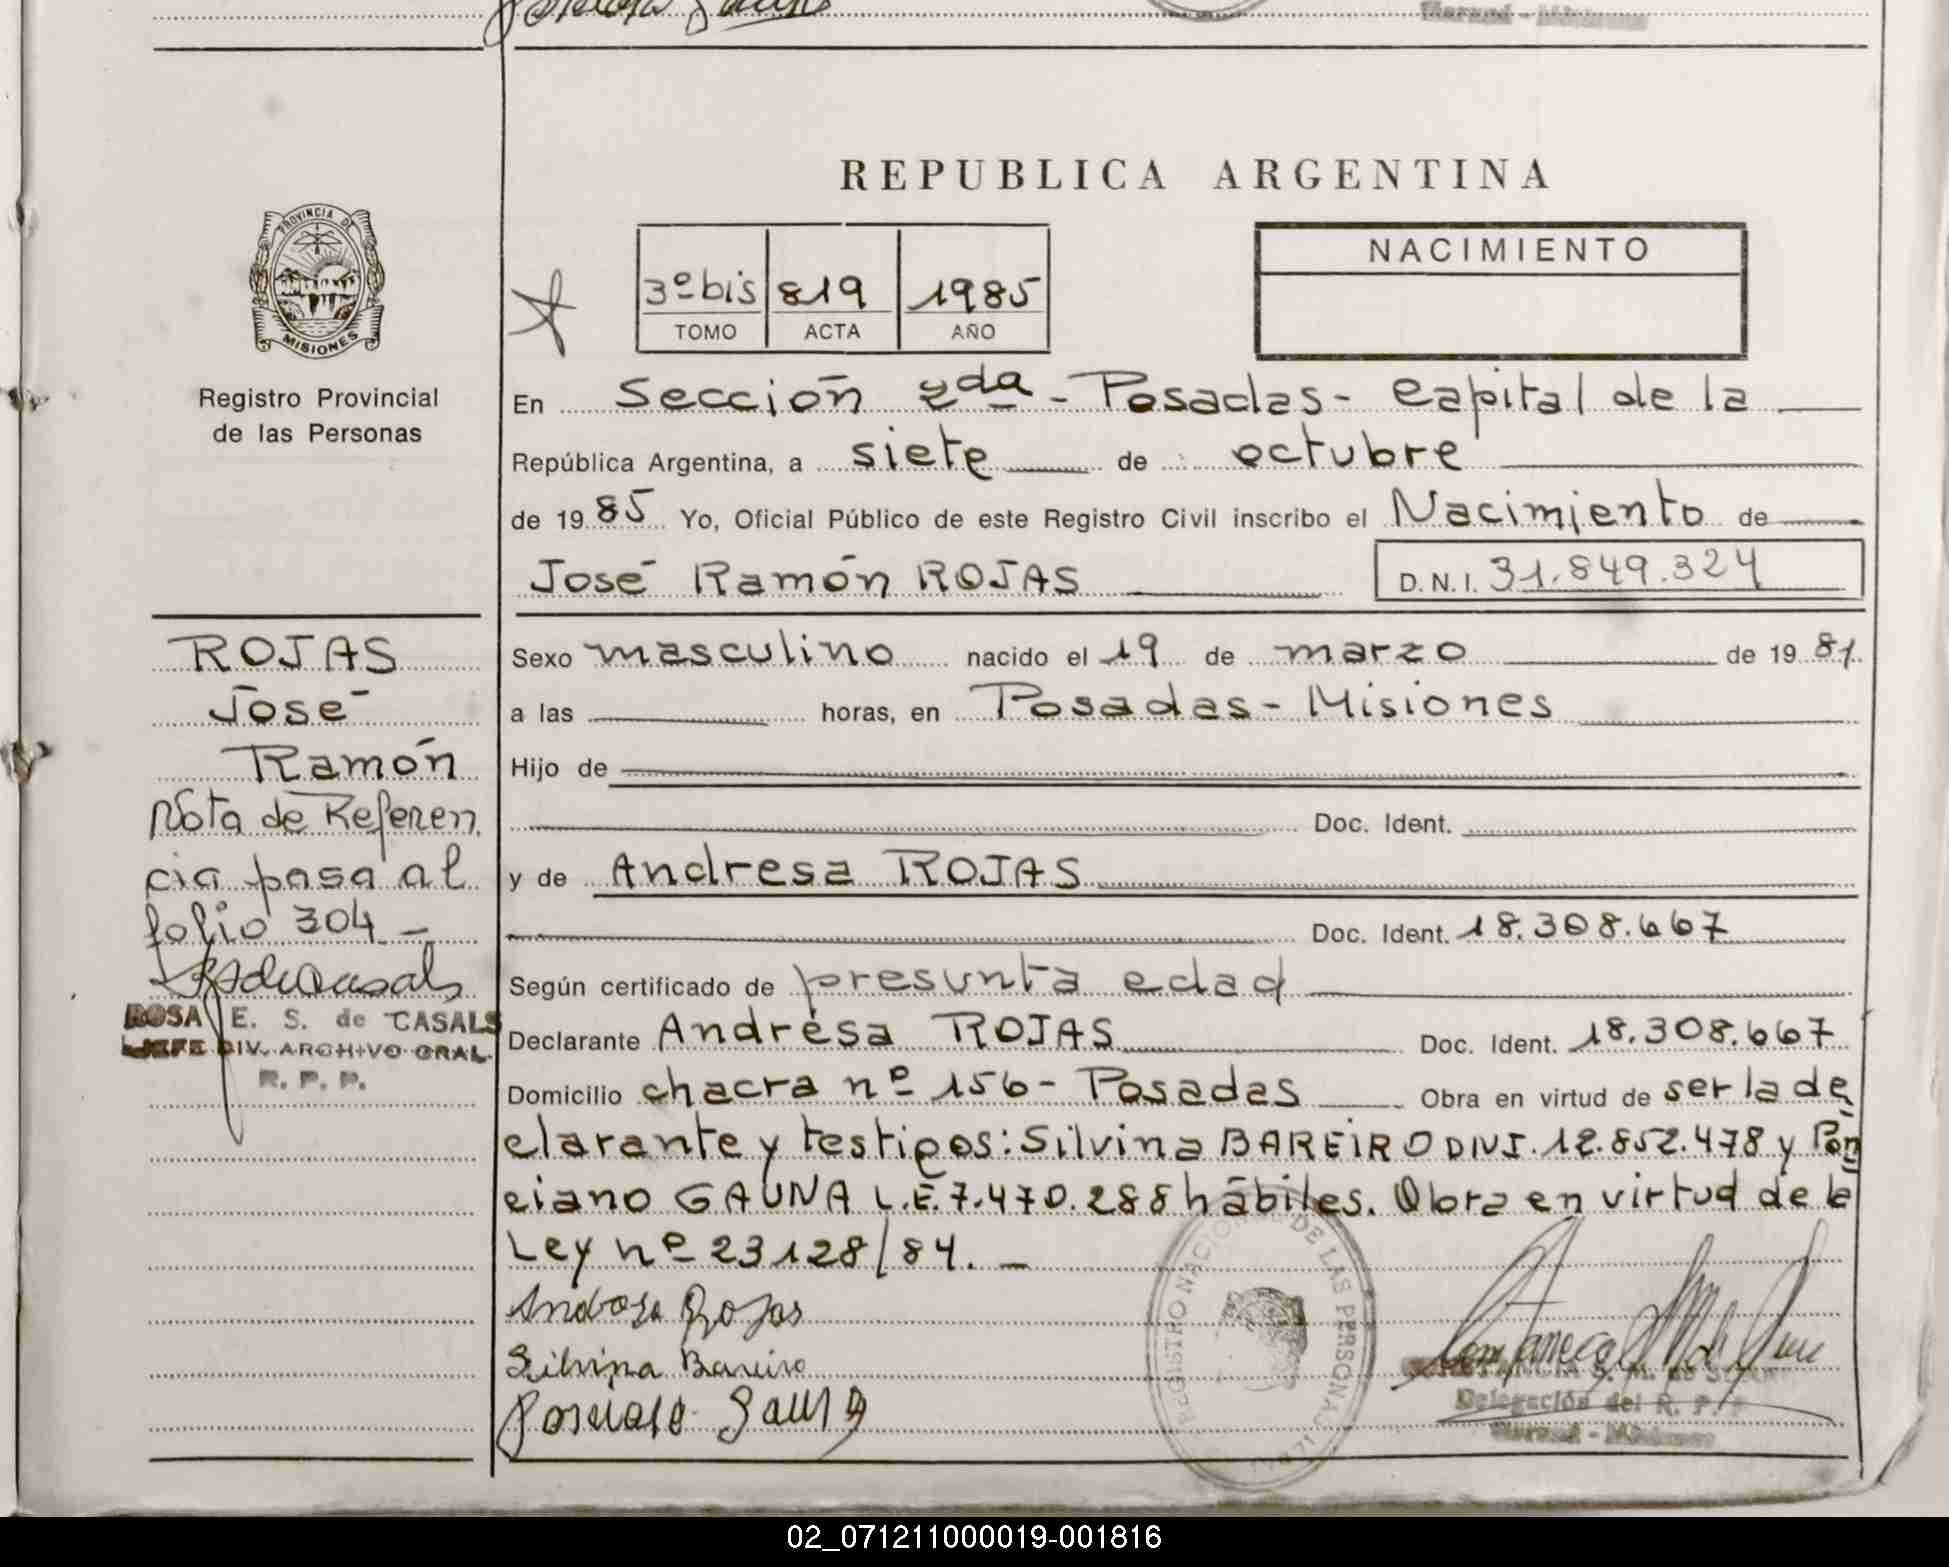 REPUBLICA ARGENTINA
PROVINCIA DE
MISIONES
Registro Provincial
de las Personas
3º bis 819 1985
TOMO ACTA AÑO
NACIMIENTO
En Sección 2da - Posadas - Capital de la
República Argentina, a siete de octubre
de 19 85 Yo, Oficial Público de este Registro Civil inscribo el Nacimiento de
José Ramón ROJAS
D.N.I. 31.849.324
ROJAS
José
Ramón
Nota de Referen
cia pasa al
folio 304 -
ROSA E. S. de CASALS
JEFE DIV. ARCHIVO GRAL.
R. P. P.
Sexo masculino nacido el 19 de marzo de 19 81.
a las horas, en Posadas - Misiones
Hijo de
Doc. Ident.
y de Andresa ROJAS
Doc. Ident. 18.308.667
Según certificado de presunta edad
Declarante Andrésa ROJAS Doc. Ident. 18.308.667
Domicilio chacra nº 156 - Posadas Obra en virtud de ser la de
clarante y testigos: Silvina BAREIRO DNI. 12.852.478 y Pon
ciano GAUNA L.E. 7.470.288 hábiles. Obra en virtud de la
Ley nº 23128/84. -
Andresa Rojas
Silvina Bareiro
Gauna
REGISTRO NACIONAL DE LAS PERSONAS
Delegación del R. P. P.
02_071211000019-001816